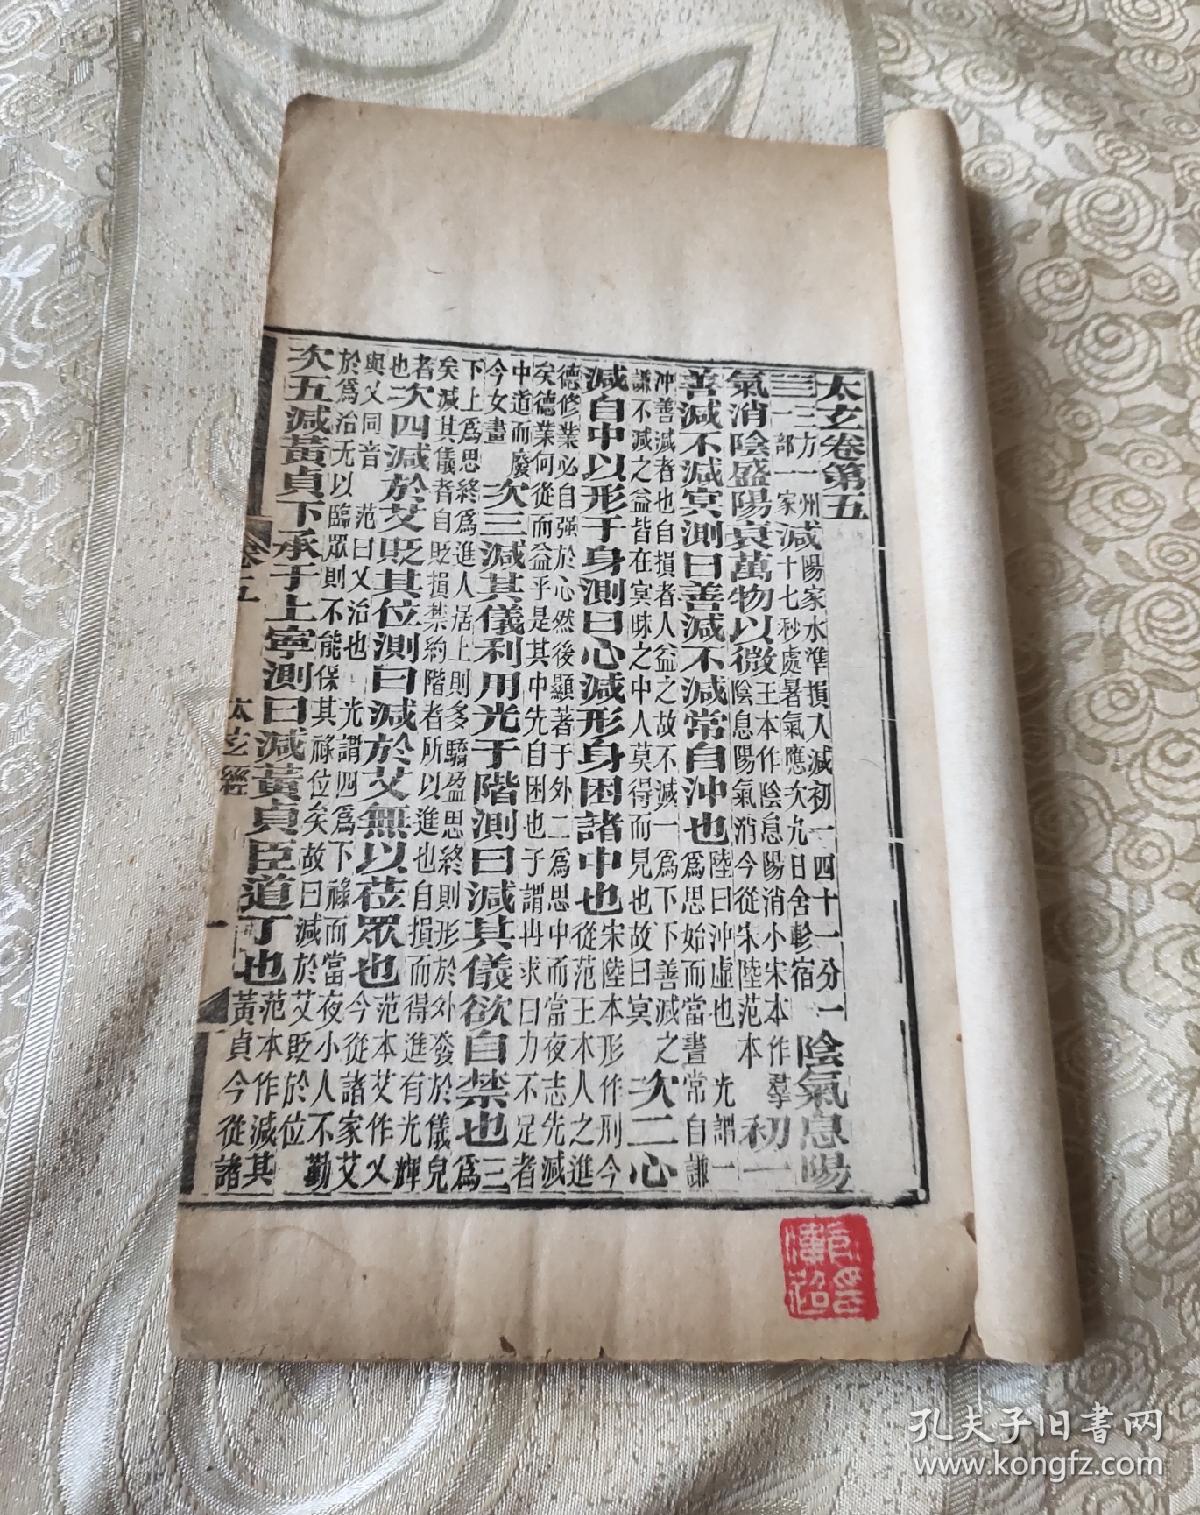 太玄卷第五
三方一州一部一家減陽家水準損入減初一四十二分一十七秒處暑氣應次九日舍軫宿陰氣息陽
氣消陰盛陽衰萬物以微王本作陰息陽消小宋本作羣陰息陽氣消今從宋陸范本初一
善減不減冥測曰善減不減常自沖也陸曰沖虛也光謂一爲思始而當晝常自謙
沖善減者也自損者人益之故不減一爲下下善減之謙不減之益皆在冥昧之中人莫得而見也故曰冥次二心
減自中以形于身測曰心減形身困諸中也宋陸本形作刑今從范王本人之進
德修業必自强於心然後顯著于外二爲思中而當夜志先減矣德業何從而益乎是其中先自困也子謂冉求曰力不足者
中道而廢今女畫次三減其儀利用光于階測曰減其儀欲自禁也三爲
下上爲思終爲進人居上則多驕盈思終則形於外發於儀皃矣減其儀者自貶損禁約階者所以進也自損而得進有光輝
者也次四減於艾貶其位測曰減於艾無以莅眾也范本艾作乂今從諸家艾
與乂同音范曰乂治也光謂四爲下祿而當夜小人不勤於爲治无以臨眾則不能保其祿位矣故曰減於艾貶於位
次五減黃貞下承于上寧測曰減黃貞臣道丁也范本作減其黃貞今從諸
卷五
太玄經
一
孔夫子旧书网
www.kongfz.com